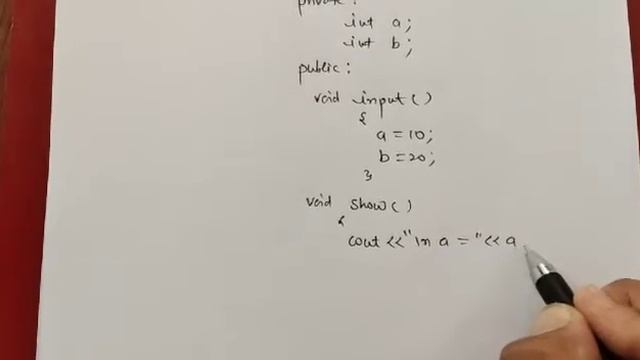 private :
int a;
int b;
public :
void input()
{
a = 10;
b = 20;
}
void show()
{
cout <<"\n a = "<< a